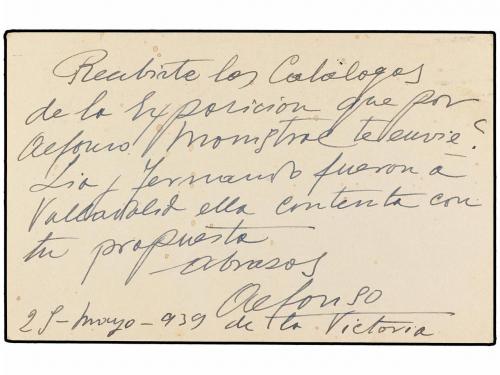 Recibirte los Catálogos
de la Exposicion que por
Alfonso Monistral te envie?
Lia y Fernando fueron á
Valladolid ella contenta con
tu propuesta
abrasos
Alfonso
25-mayo-939 de la Victoria